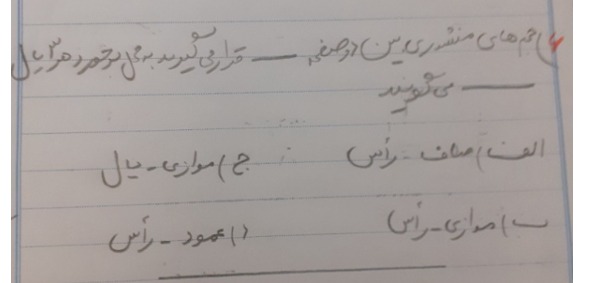 حجم های منشوری بین دو صفحه — قرار می گیرند به محل برخورد هر ۳ یال
— می گویند
الف) صاف - رأس ج) موازی - یال
ب) موازی - رأس د) عمود - رأس